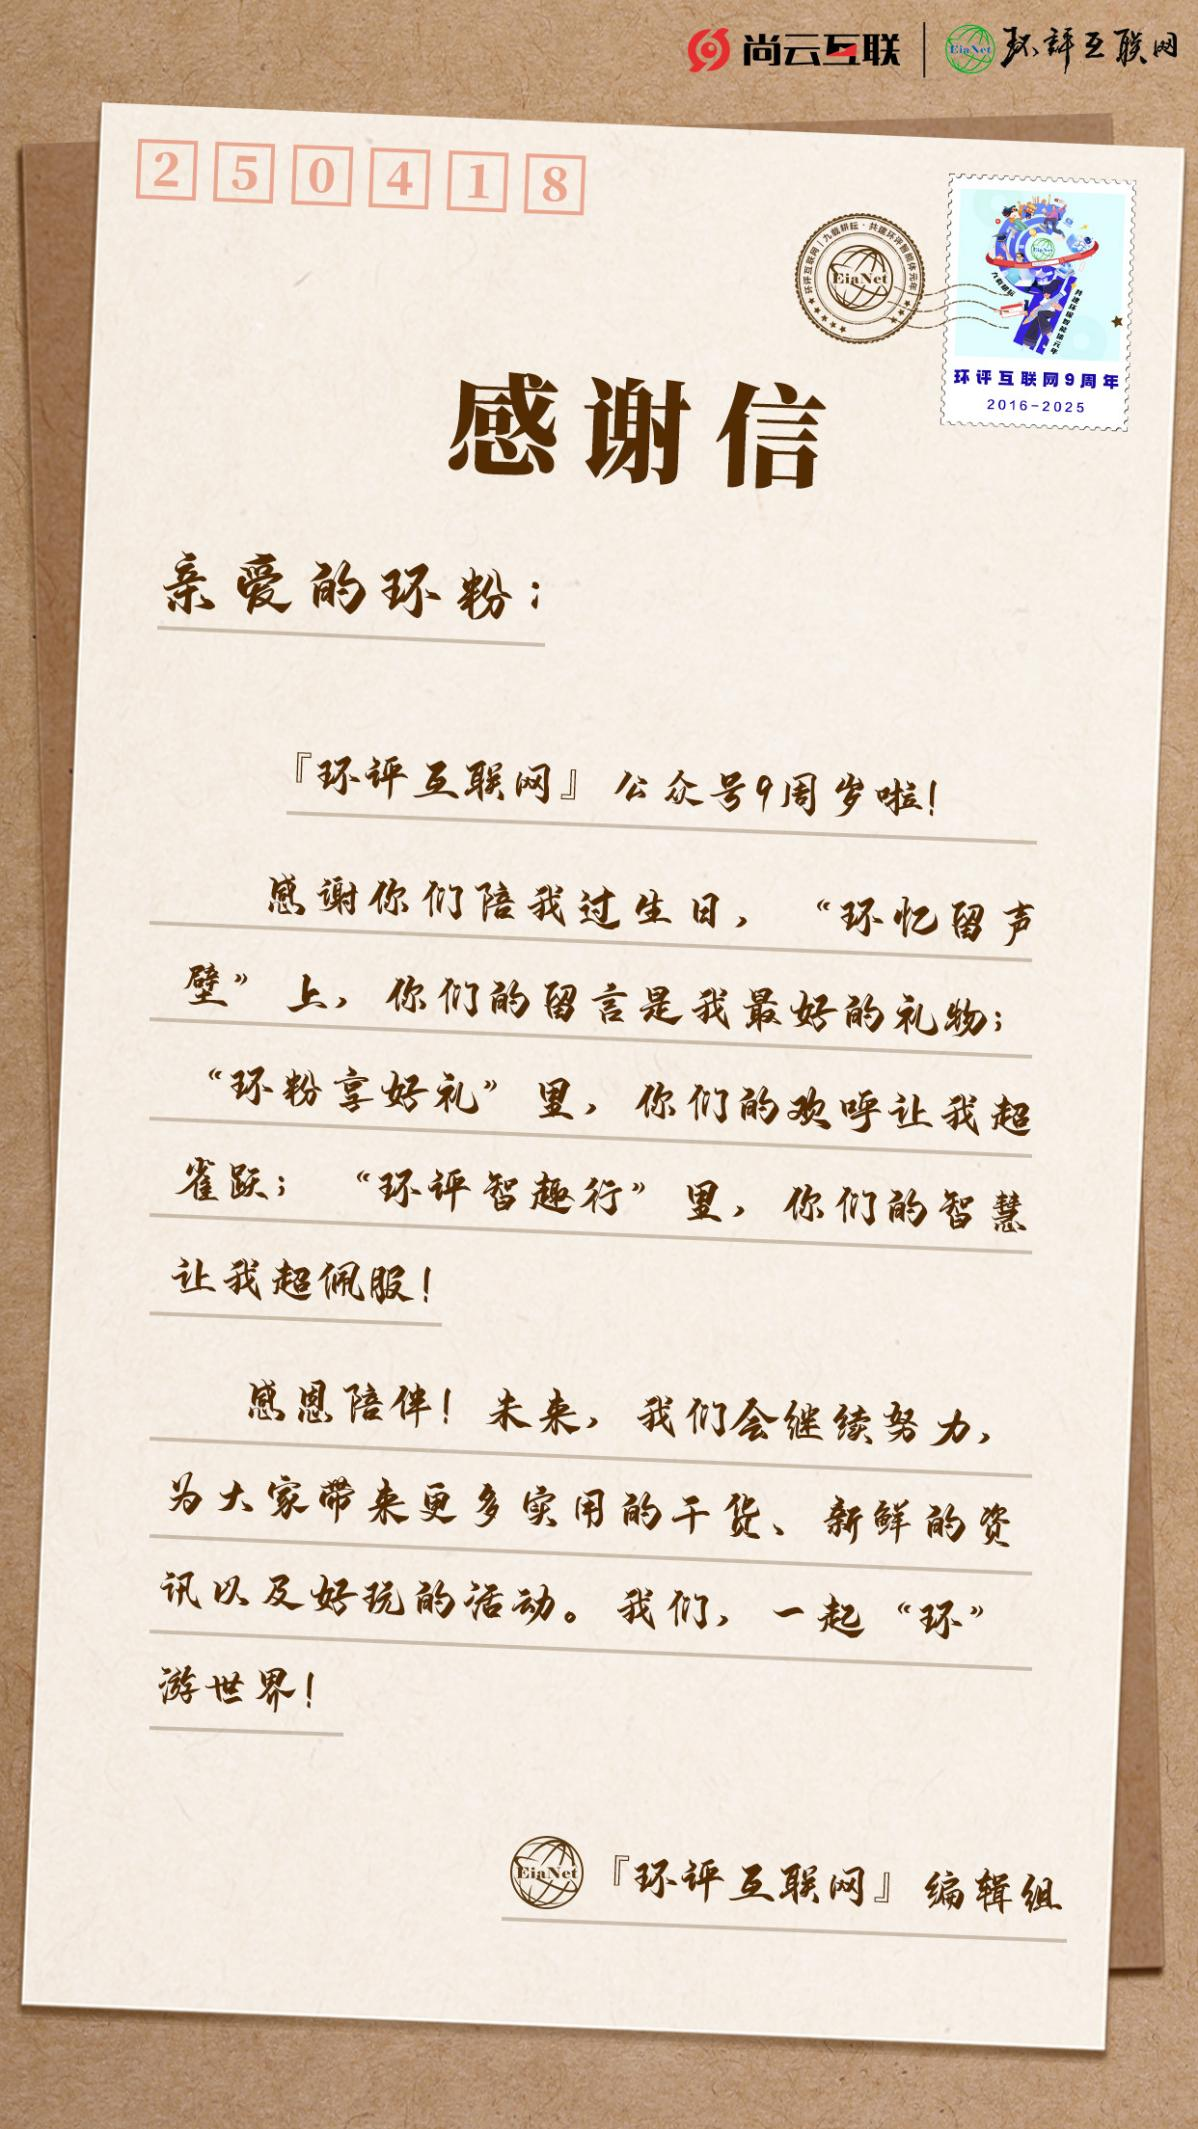 尚云互联 EiaNet 环评互联网
250418
环评互联网 九载耕耘·共建环评智能体元年
EiaNet
EiaNet
九载耕耘
共建环评智能体元年
环评互联网9周年
2016-2025
感谢信
亲爱的环粉：
『环评互联网』公众号9周岁啦！
感谢你们陪我过生日，“环忆留声
壁”上，你们的留言是我最好的礼物；
“环粉享好礼”里，你们的欢呼让我超
雀跃；“环评智趣行”里，你们的智慧
让我超佩服！
感恩陪伴！未来，我们会继续努力，
为大家带来更多实用的干货、新鲜的资
讯以及好玩的活动。我们，一起“环”
游世界！
EiaNet 『环评互联网』编辑组